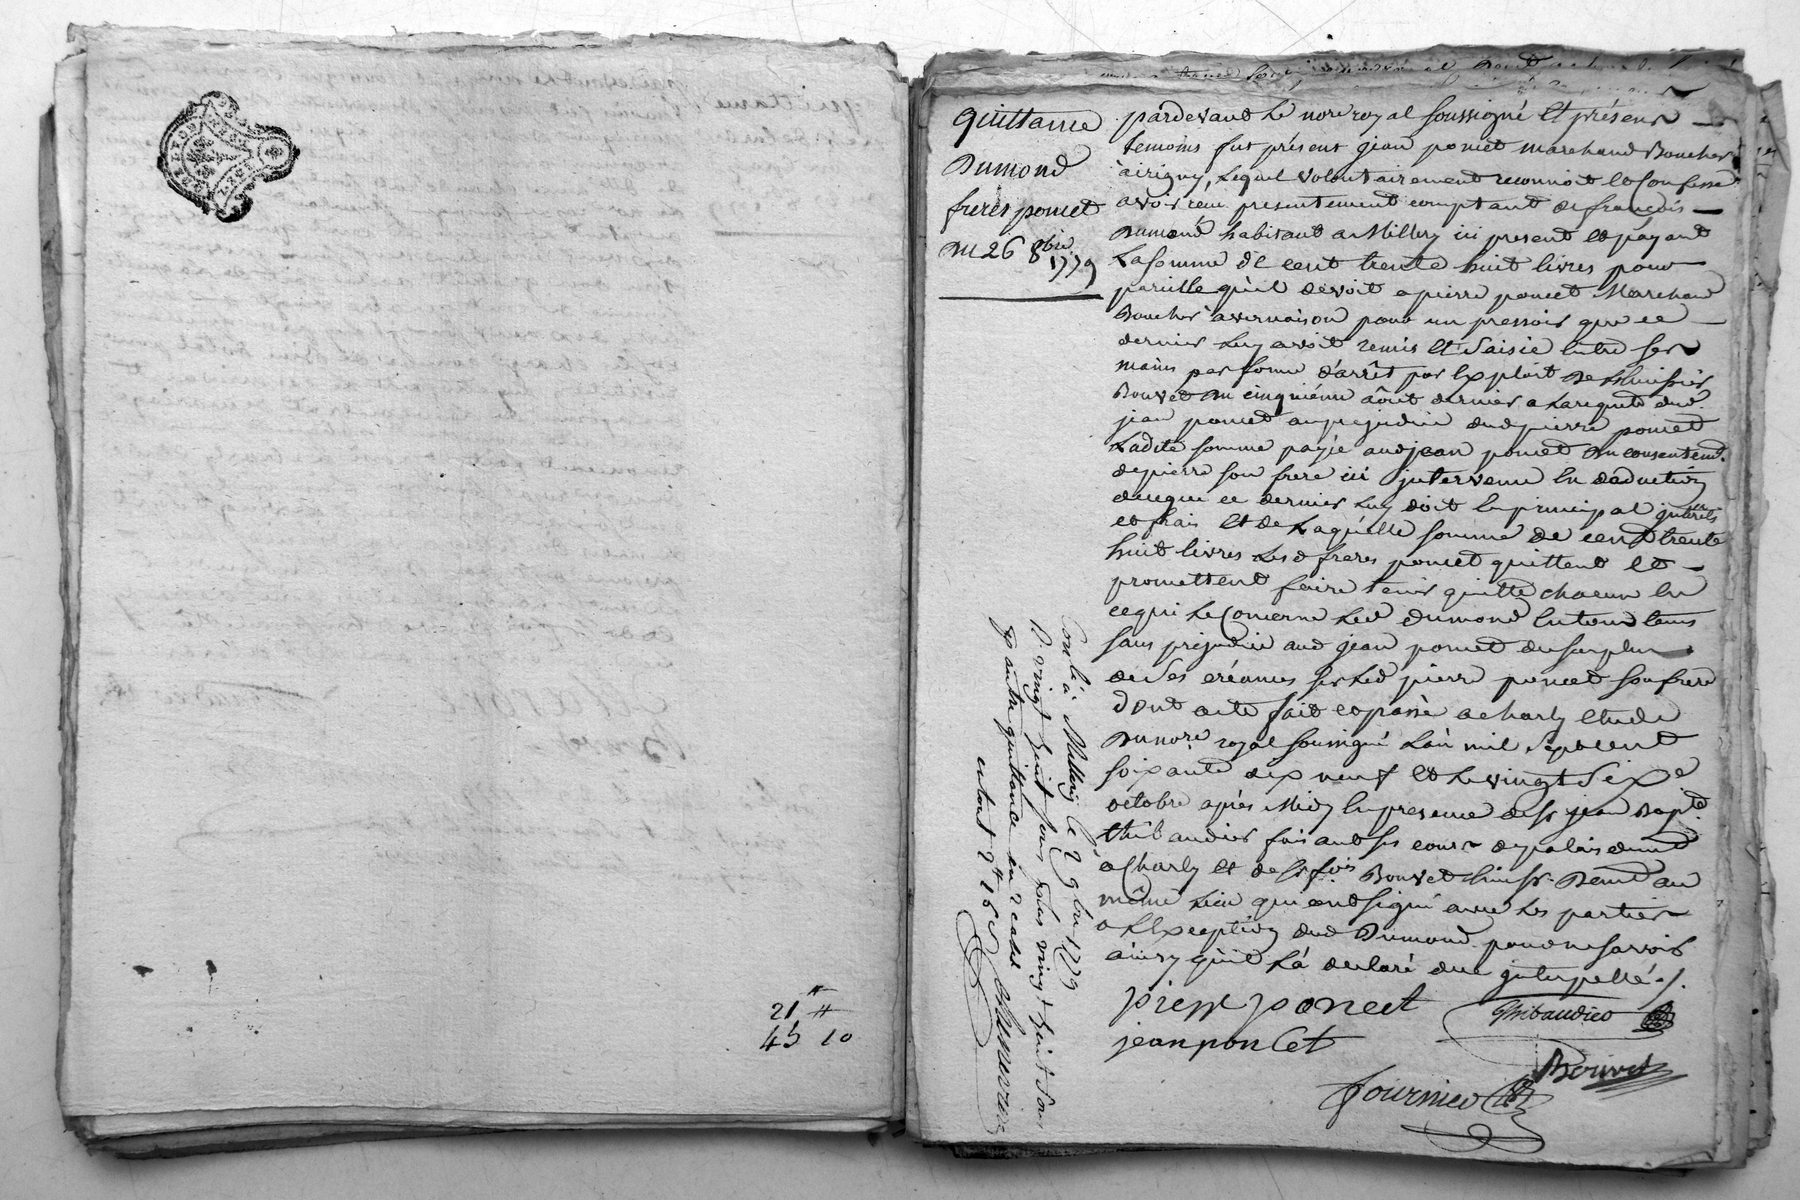 21 ″ ″
45 10
quittance
Dumond
freres poncet
Du 26 8bre
1779
pardevant Le nore royal soussigné Et présens
temoins fut présent jean poncet marchand Boucher
à irigny, Lequel volontairement reconnoit et Confesse
avoir reçu presentement comptant de françois
Dumond habitant a Millery ici present et payant
La somme de cent trente huit livres pour
pareille qu'il devoit a pierre poncet Marchand
Boucher a vernaison pour un pressoir que ce
dernier Luy avoit remis Et Saisie entre ses
mains par forme d'arrêt par Exploit De L'huissier
Bouvet du cinquiéme août dernier a La requete dud.
jean poncet au prejudice dud pierre poncet
Ladite somme payée aud jean poncet du consentemt.
de pierre son frere ici intervenu En deduction
de ce que ce dernier Luy doit En principal interets
et frais Et de Laquelle somme de cent trente
huit livres Lesd freres poncet quittent et
promettent faire tenir quitte chacun En
ce qui Le Concerne Led Dumond Envers tous
sans prejudice aud jean poncet du surplus
de Ses créances sur Led pierre poncet son frere
Dont acte fait et passé a charly Etude
Du nore. royal soussigné L'an mil Sept cent
soixante dix neuf et Le vingt Sixe
octobre après Midy En presence de sr jean Bapte.
thibaudier faisant ses cours de palais demt
a Charly et de sr fois Bouvet huissr. Demt au
même Lieu qui ont signé avec Les parties
a L'Exception dud Dumond pour ne savoir
ainsy qu'il L'a declaré de ce interpellé ./.
pierre poncet
jean poncet
Thibaudier
Bouvet
fournier
Conlé à Millery le 2 9bre 1779
R. vingt huit sous plus vingt huit sous
pr autre quittance en 2 cahiers
en tout 2tt 16 s